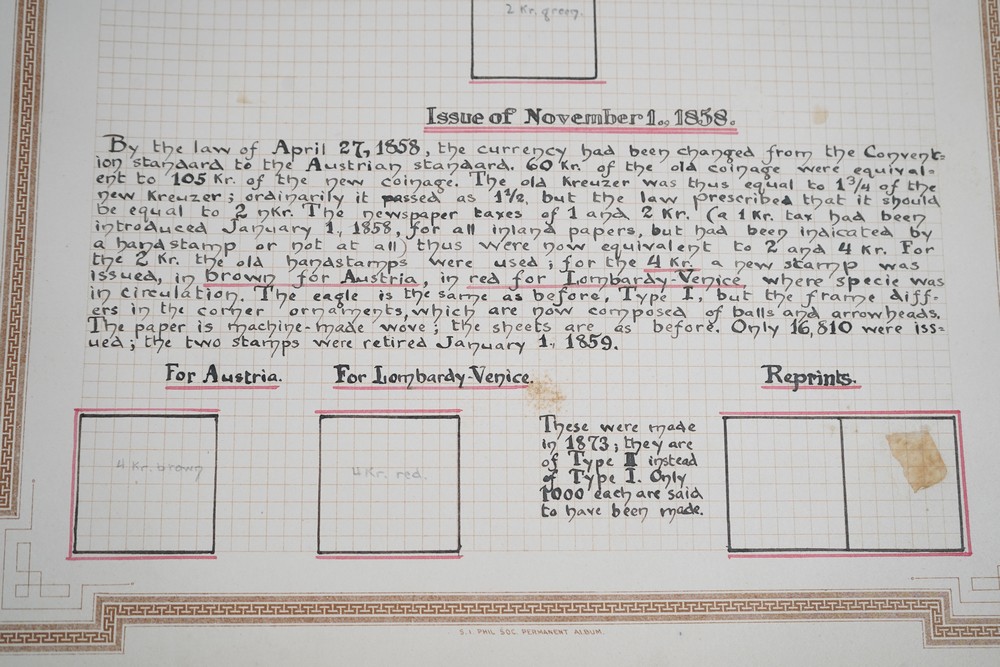 2 Kr. green.
Issue of November 1., 1858.
By the law of April 27, 1858, the currency had been changed from the Convent-
ion standard to the Austrian standard. 60 Kr. of the old coinage were equival-
ent to 105 Kr. of the new coinage. The old Kreuzer was thus equal to 1 3/4 of the
new Kreuzer; ordinarily it passed as 1 1/2, but the law prescribed that it should
be equal to 2 nKr. The newspaper taxes of 1 and 2 Kr. (a 1 Kr. tax had been
introduced January 1., 1858, for all inland papers, but had been indicated by
a handstamp or not at all) thus were now equivalent to 2 and 4 Kr. For
the 2 Kr. the old handstamps were used; for the 4 Kr. a new stamp was
issued, in brown for Austria, in red for Lombardy-Venice, where specie was
in circulation. The eagle is the same as before, Type I, but the frame diff-
ers in the corner ornaments, which are now composed of balls and arrowheads.
The paper is machine-made wove; the sheets are as before. Only 16,810 were iss-
ued; the two stamps were retired January 1., 1859.
For Austria.
For Lombardy-Venice.
Reprints.
4 Kr. brown
4 Kr. red.
These were made
in 1873; they are
of Type II instead
of Type I. Only
1000 each are said
to have been made.
S. I. PHIL SOC. PERMANENT ALBUM.